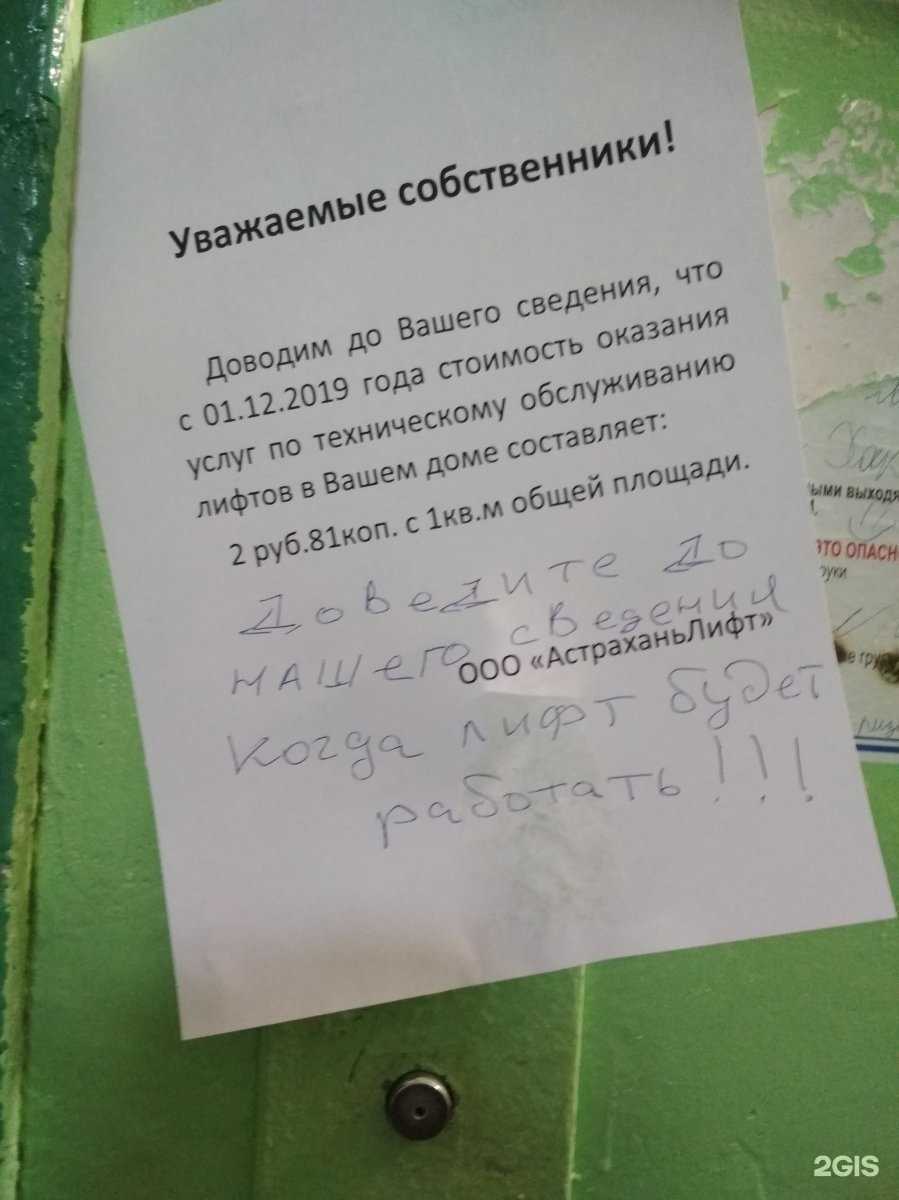 Уважаемые собственники!
Доводим до Вашего сведения, что
с 01.12.2019 года стоимость оказания
услуг по техническому обслуживанию
лифтов в Вашем доме составляет:
2 руб.81коп. с 1кв.м общей площади.
Доведите до
нашего сведения
ООО «АстраханьЛифт»
когда лифт будет
работать!!!
ыми выходя
ЭТО ОПАСН
руки
е гру
2GIS